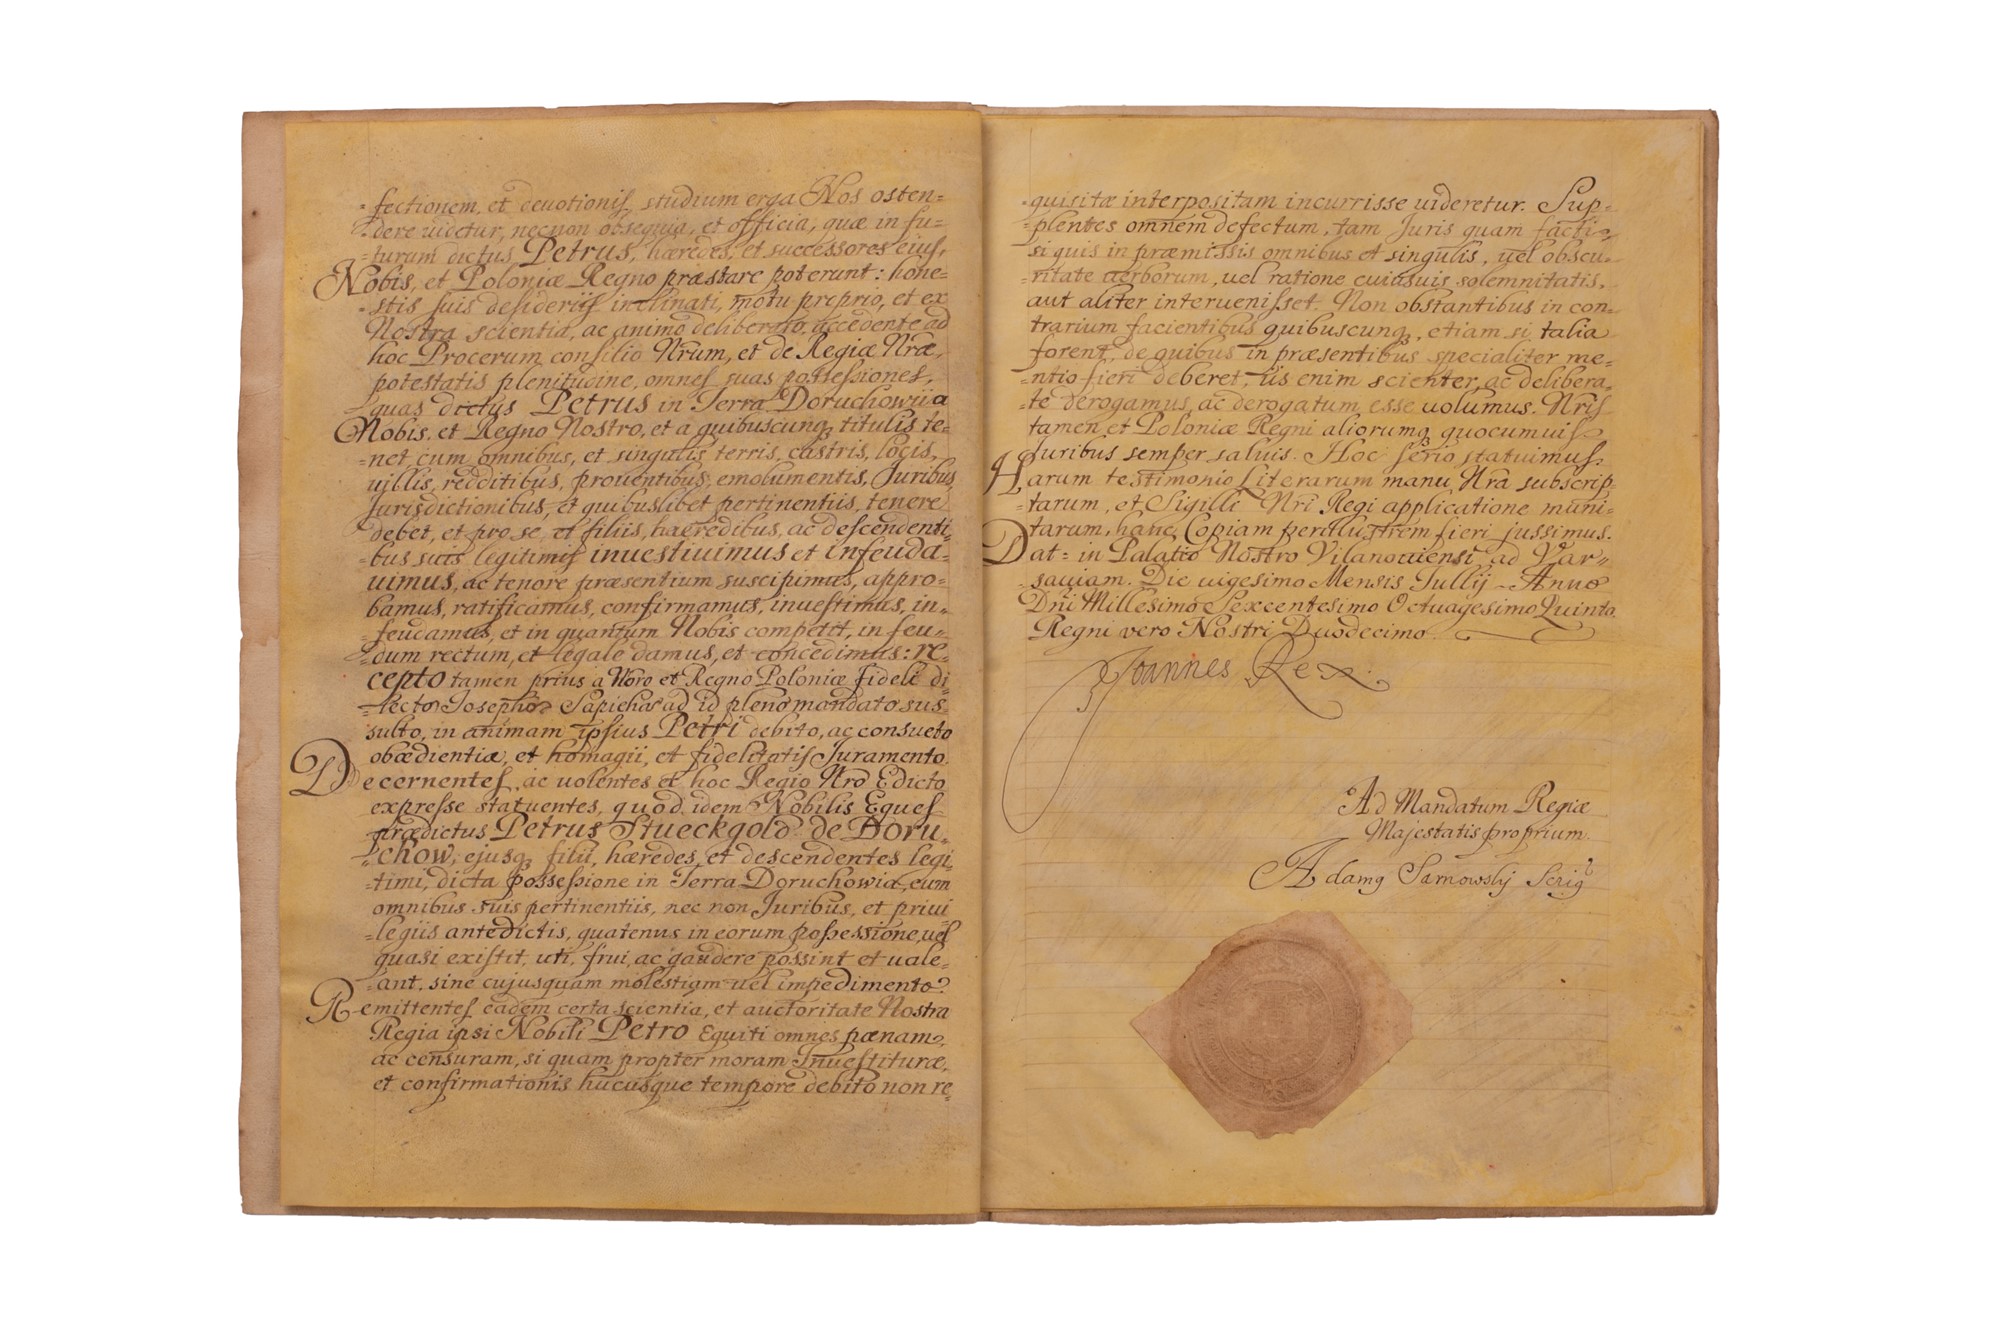 =fectionem, et devotionis studium erga Nos osten=
=dere uidetur, necnon obsequia, et officia, quæ in fu=
=turum dictus Petrus, hæredes, et successores eius,
Nobis, et Poloniæ Regno præstare poterunt: hone=
=stis suis desideriis inclinati, motu proprio, et ex
Nostra scientia, ac animo deliberato, accedente ad
hoc Procerum consilio Nrum, et de Regiæ Nræ,
potestatis plenitudine, omnes suas possessiones,
quas dictus Petrus in Terra Doruchowia
Nobis, et Regno Nostro, et a quibuscunq, titulis te=
=net cum omnibus, et singulis terris, castris, locis,
uillis, redditibus, prouentibus, emolumentis, Juribus,
Jurisdictionibus, et quibuslibet pertinentiis, tenere
debet, et pro se, et filiis, hæredibus, ac descendenti=
=bus suis legitimis inuestiuimus et infeuda=
uimus, ac tenore præsentium suscipimus, appro=
bamus, ratificamus, confirmamus, inuestimus, in=
=feudamus, et in quantum Nobis competit, in feu=
=dum rectum, et legale damus, et concedimus: re=
cepto tamen prius a Noro et Regno Poloniæ fideli di=
=lecto Josepho Sapieha ad id pleno mandato suf=
sulto, in animam ipsius Petri debito, ac consueto
obœdientiæ, et homagii, et fidelitatis Juramento.
Decernentes, ac uolentes et hoc Regio Nro Edicto
expresse statuentes, quod idem Nobilis Eques
prædictus Petrus Stueckgold de Doru=
=chow, ejusq, filii, hæredes, et descendentes legi=
=timi, dicta possessione in Terra Doruchowia, cum
omnibus suis pertinentiis, nec non Juribus, et priui
=legiis antedictis, quatenus in eorum possessione, uel
quasi existit, uti, frui, ac gaudere possint et uale=
=ant, sine cujusquam molestiam uel impedimento.
Remittentes eadem certa scientia, et auctoritate Nostra
Regia ipsi Nobili Petro Equiti omnes pænam,
ac censuram, si quam propter moram Inuestituræ,
et confirmationis hucusque tempore debito non re=
=quisitæ interpositam incurrisse uideretur. Sup=
=plentes omnem defectum, tam Juris quam facti,
si quis in præmissis omnibus et singulis, uel obscu=
=ritate uerborum, uel ratione cuiusuis solemnitatis,
aut aliter interuenisset. Non obstantibus in con=
trarium facientibus quibuscunq, etiam si talia
forent, de quibus in præsentibus specialiter me=
=ntio fieri deberet, iis enim scienter, ac delibera=
=te derogamus, ac derogatum esse uolumus. Nris
tamen et Poloniæ Regni aliorumq quocumuis
Juribus semper saluis. Hoc serio statuimus.
Harum testimonio Literarum manu Nra subscrip=
=tarum, et Sigilli Nri Regi applicatione muni=
=tarum, hanc Copiam perillustrem fieri jussimus.
Dat= in Palatio Nostro Vilanouiensi ad Var=
sauiam. Die uigesimo Mensis Jullij Anno
Dni Millesimo Sexcentesimo Octuagesimo Quinto.
Regni vero Nostri Duodecimo.
Joannes Rex.
Ad Mandatum Regiæ
Majestatis proprium.
Adamq Sarnowslij